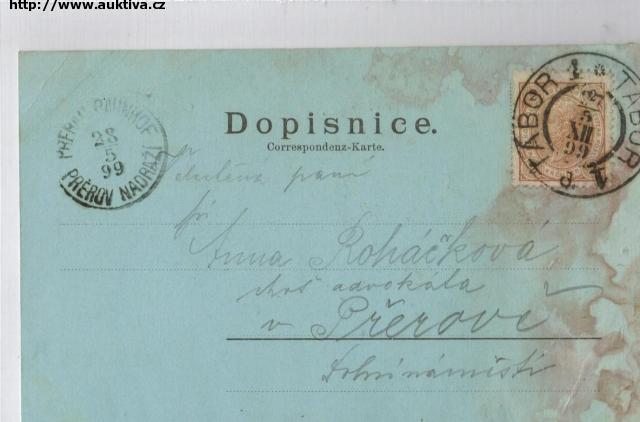 http://www.auktiva.cz
PŘEROV BAHNHOF
28
5
99
PŘEROV NÁDRAŽÍ
TÁBOR 1
TÁBOR
5
XII
99
Dopisnice.
Correspondenz-Karte.
paní
Anna Roháčková
choť advokáta
v Přerově
Dolní náměstí